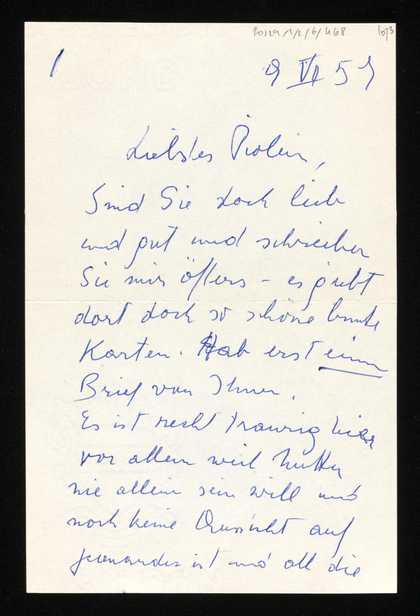 1of3
1
9 VII 57
Liebstes Piolein,
Sind Sie doch lieb
und gut und schreiben
Sie mir öfters – es giebt
dort doch so schöne bunte
Karten. Hab erst einen
Brief von Ihnen.
Es ist recht traurig hier
vor allem weil Mutter
nie allein sein will und
noch keine Aussicht auf
jemanden ist und all die